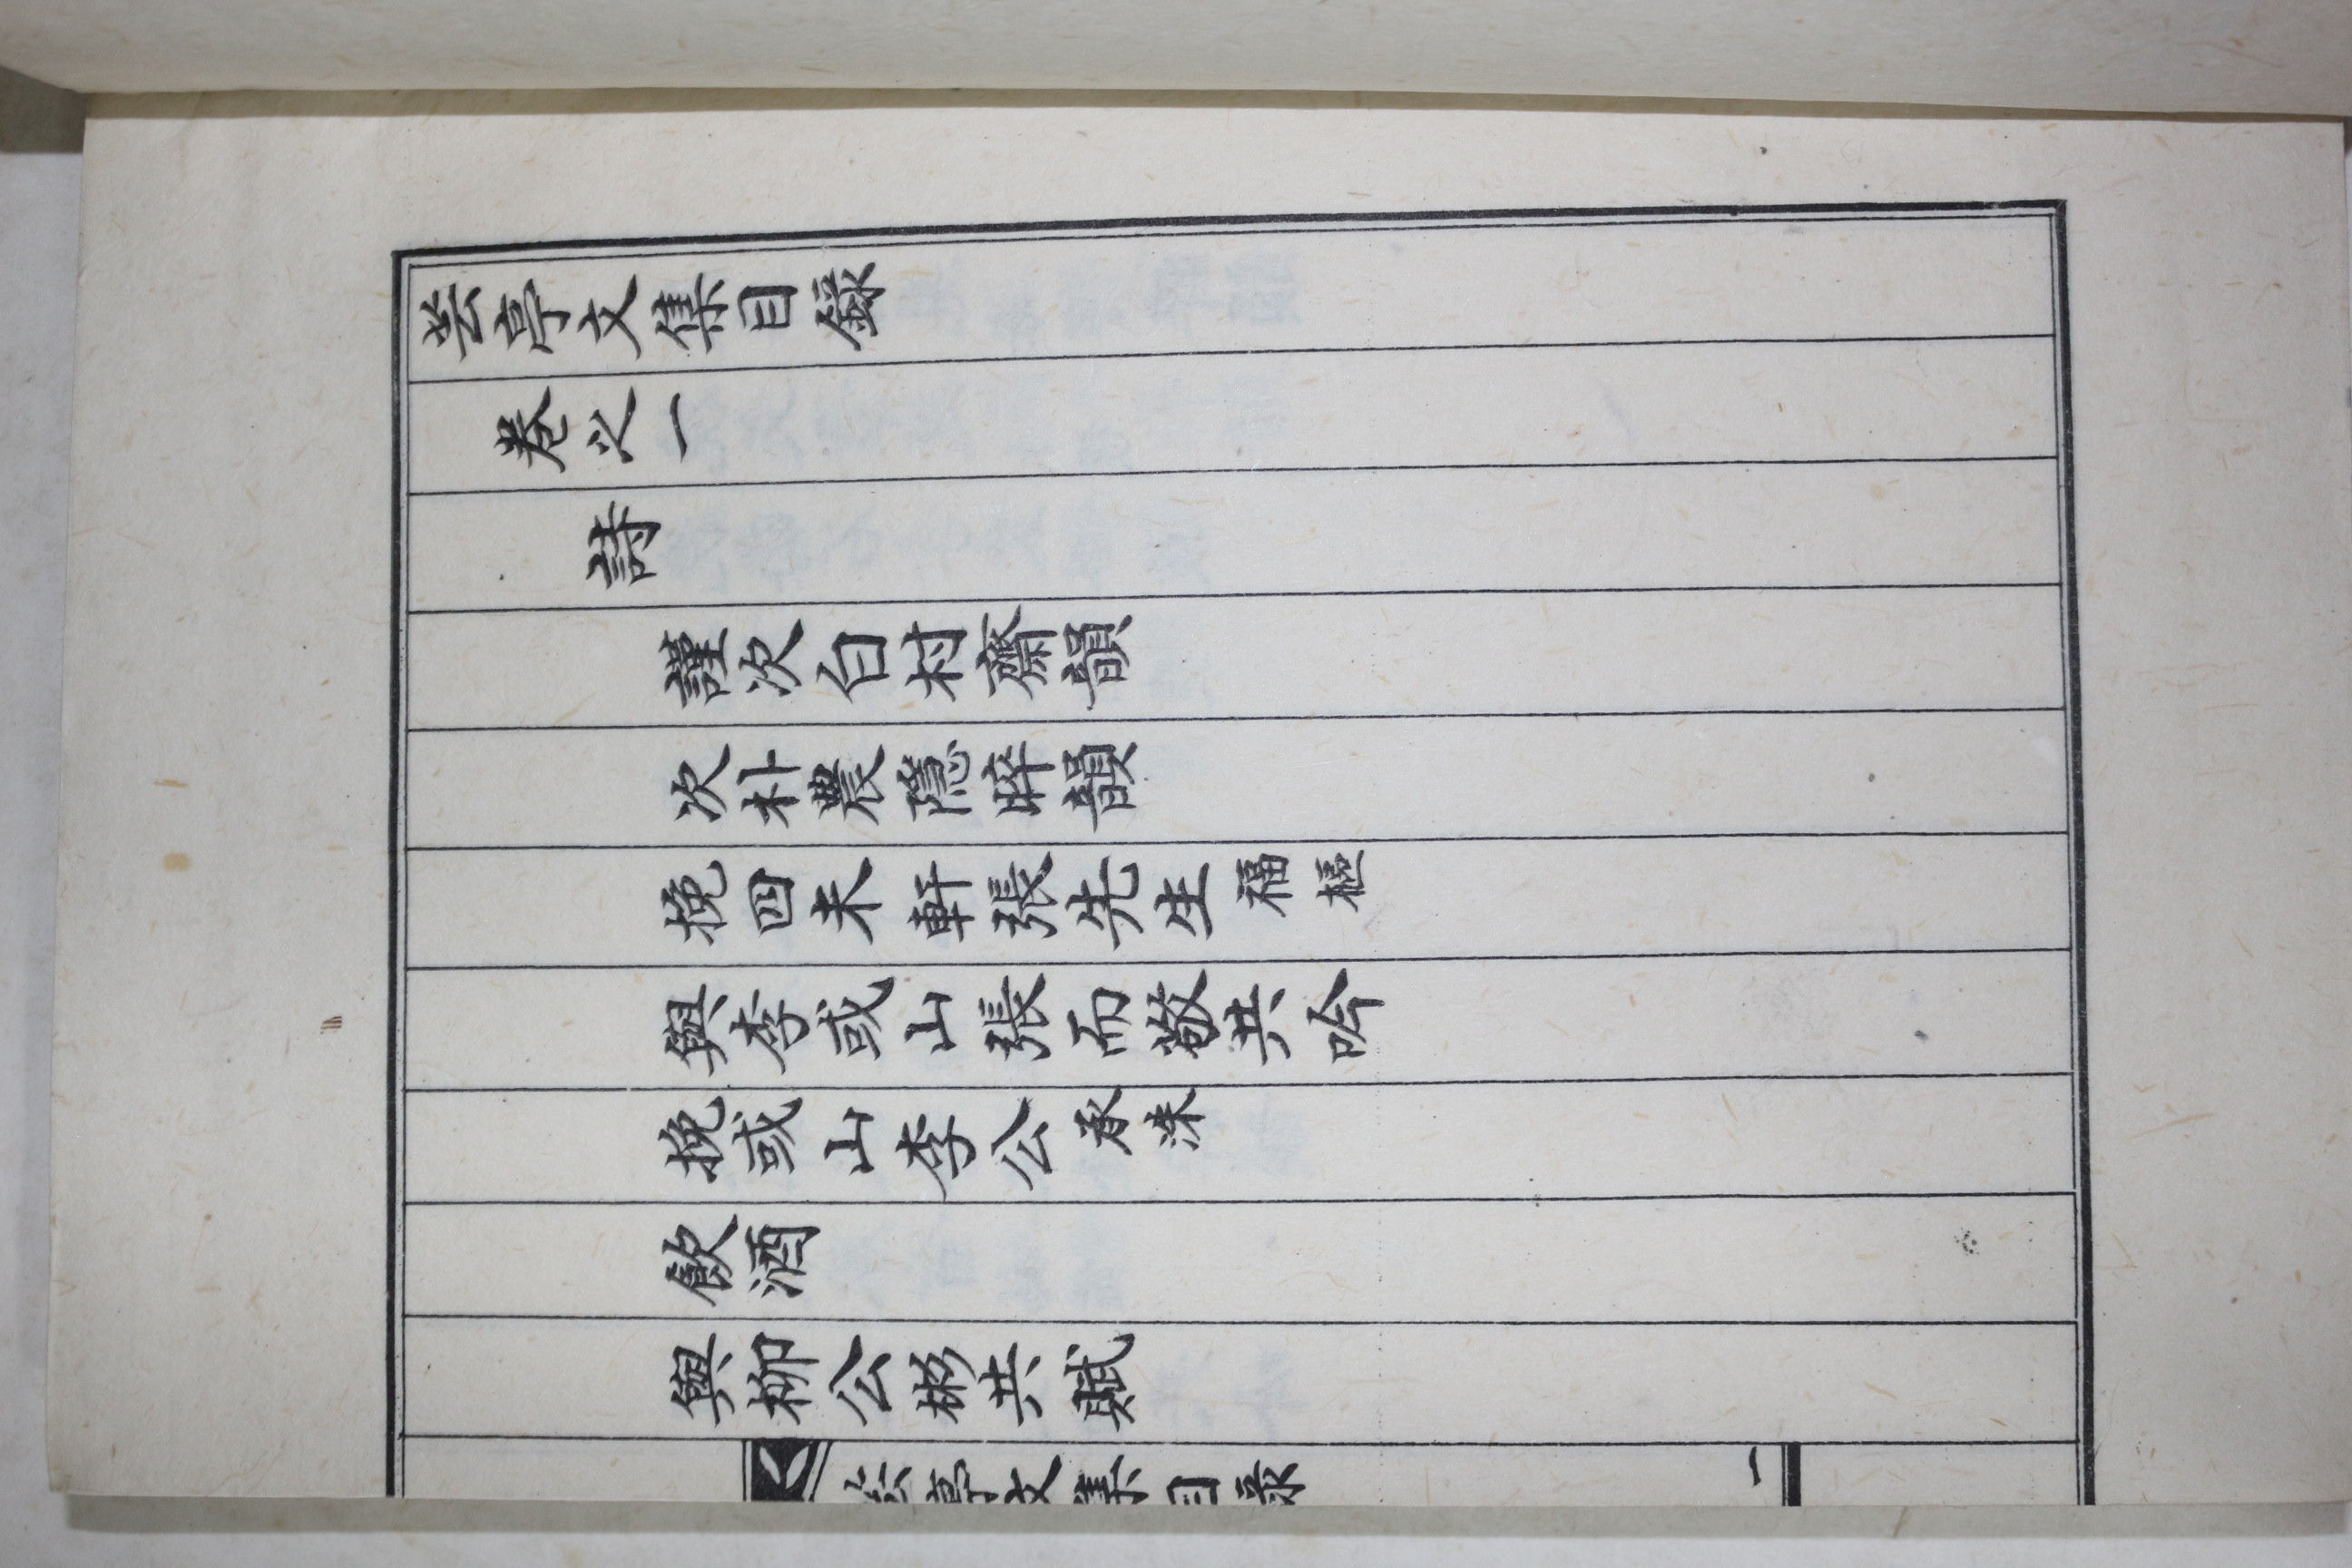 芸亭文集目錄
卷之一
詩
謹次白村齋韻
次朴農隱晬韻
挽四未軒張先生福樞
與李或山張而敬共吟
挽或山李公承洙
飮酒
與柳公彬共賦
芸亭文集目录
一